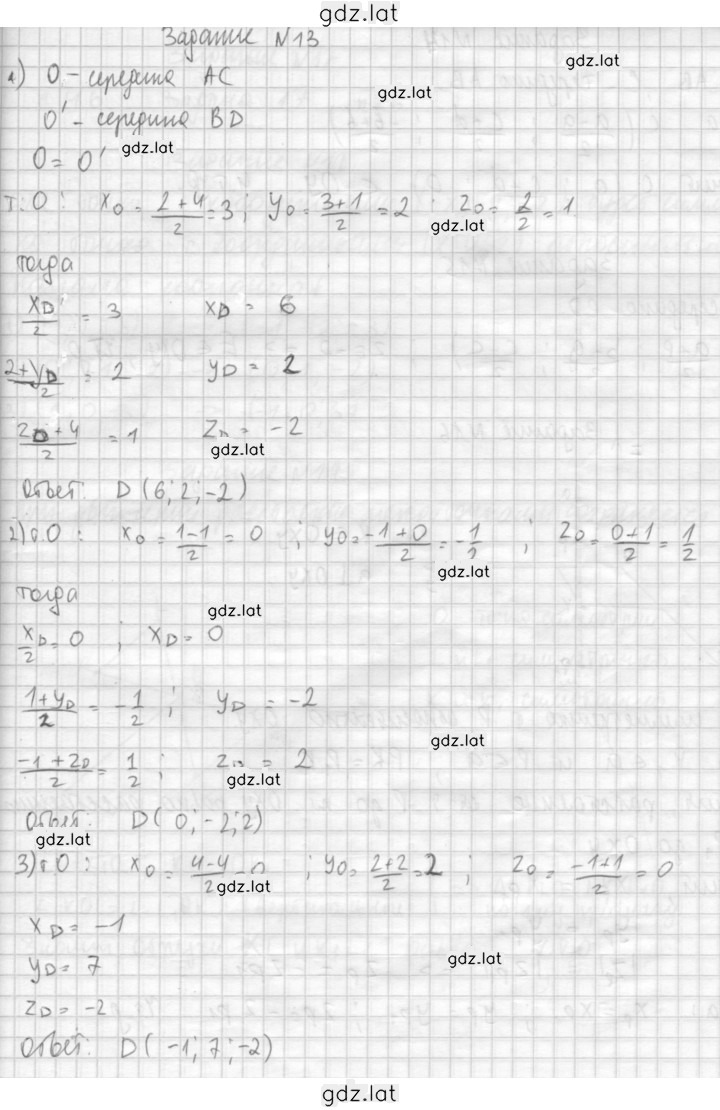 gdz.lat
Задание №13
gdz.lat
1) O - середина AC
gdz.lat
O' - середина BD
gdz.lat
O = O'
т. O : x₀ = (2+4)/2 = 3 ; y₀ = (3+1)/2 = 2 ; z₀ = 2/2 = 1
gdz.lat
тогда
x_D/2 = 3 x_D = 6
(2+y_D)/2 = 2 y_D = 2
(z_D+4)/2 = 1 z_D = -2
gdz.lat
Ответ: D (6; 2; -2)
2) т. O : x₀ = (1-1)/2 = 0 ; y₀ = (-1+0)/2 = -1/2 ; z₀ = (0+1)/2 = 1/2
gdz.lat
тогда
gdz.lat
x_D/2 = 0 ; x_D = 0
(1+y_D)/2 = -1/2 ; y_D = -2
gdz.lat
(-1+z_D)/2 = 1/2 ; z_D = 2
gdz.lat
Ответ: D( 0; -2; 2)
gdz.lat
3) т. O : x₀ = (4-4)/2 = 0 ; y₀ = (2+2)/2 = 2 ; z₀ = (-1+1)/2 = 0
gdz.lat
x_D = -1
y_D = 7
gdz.lat
z_D = -2
Ответ: D( -1; 7; -2)
gdz.lat